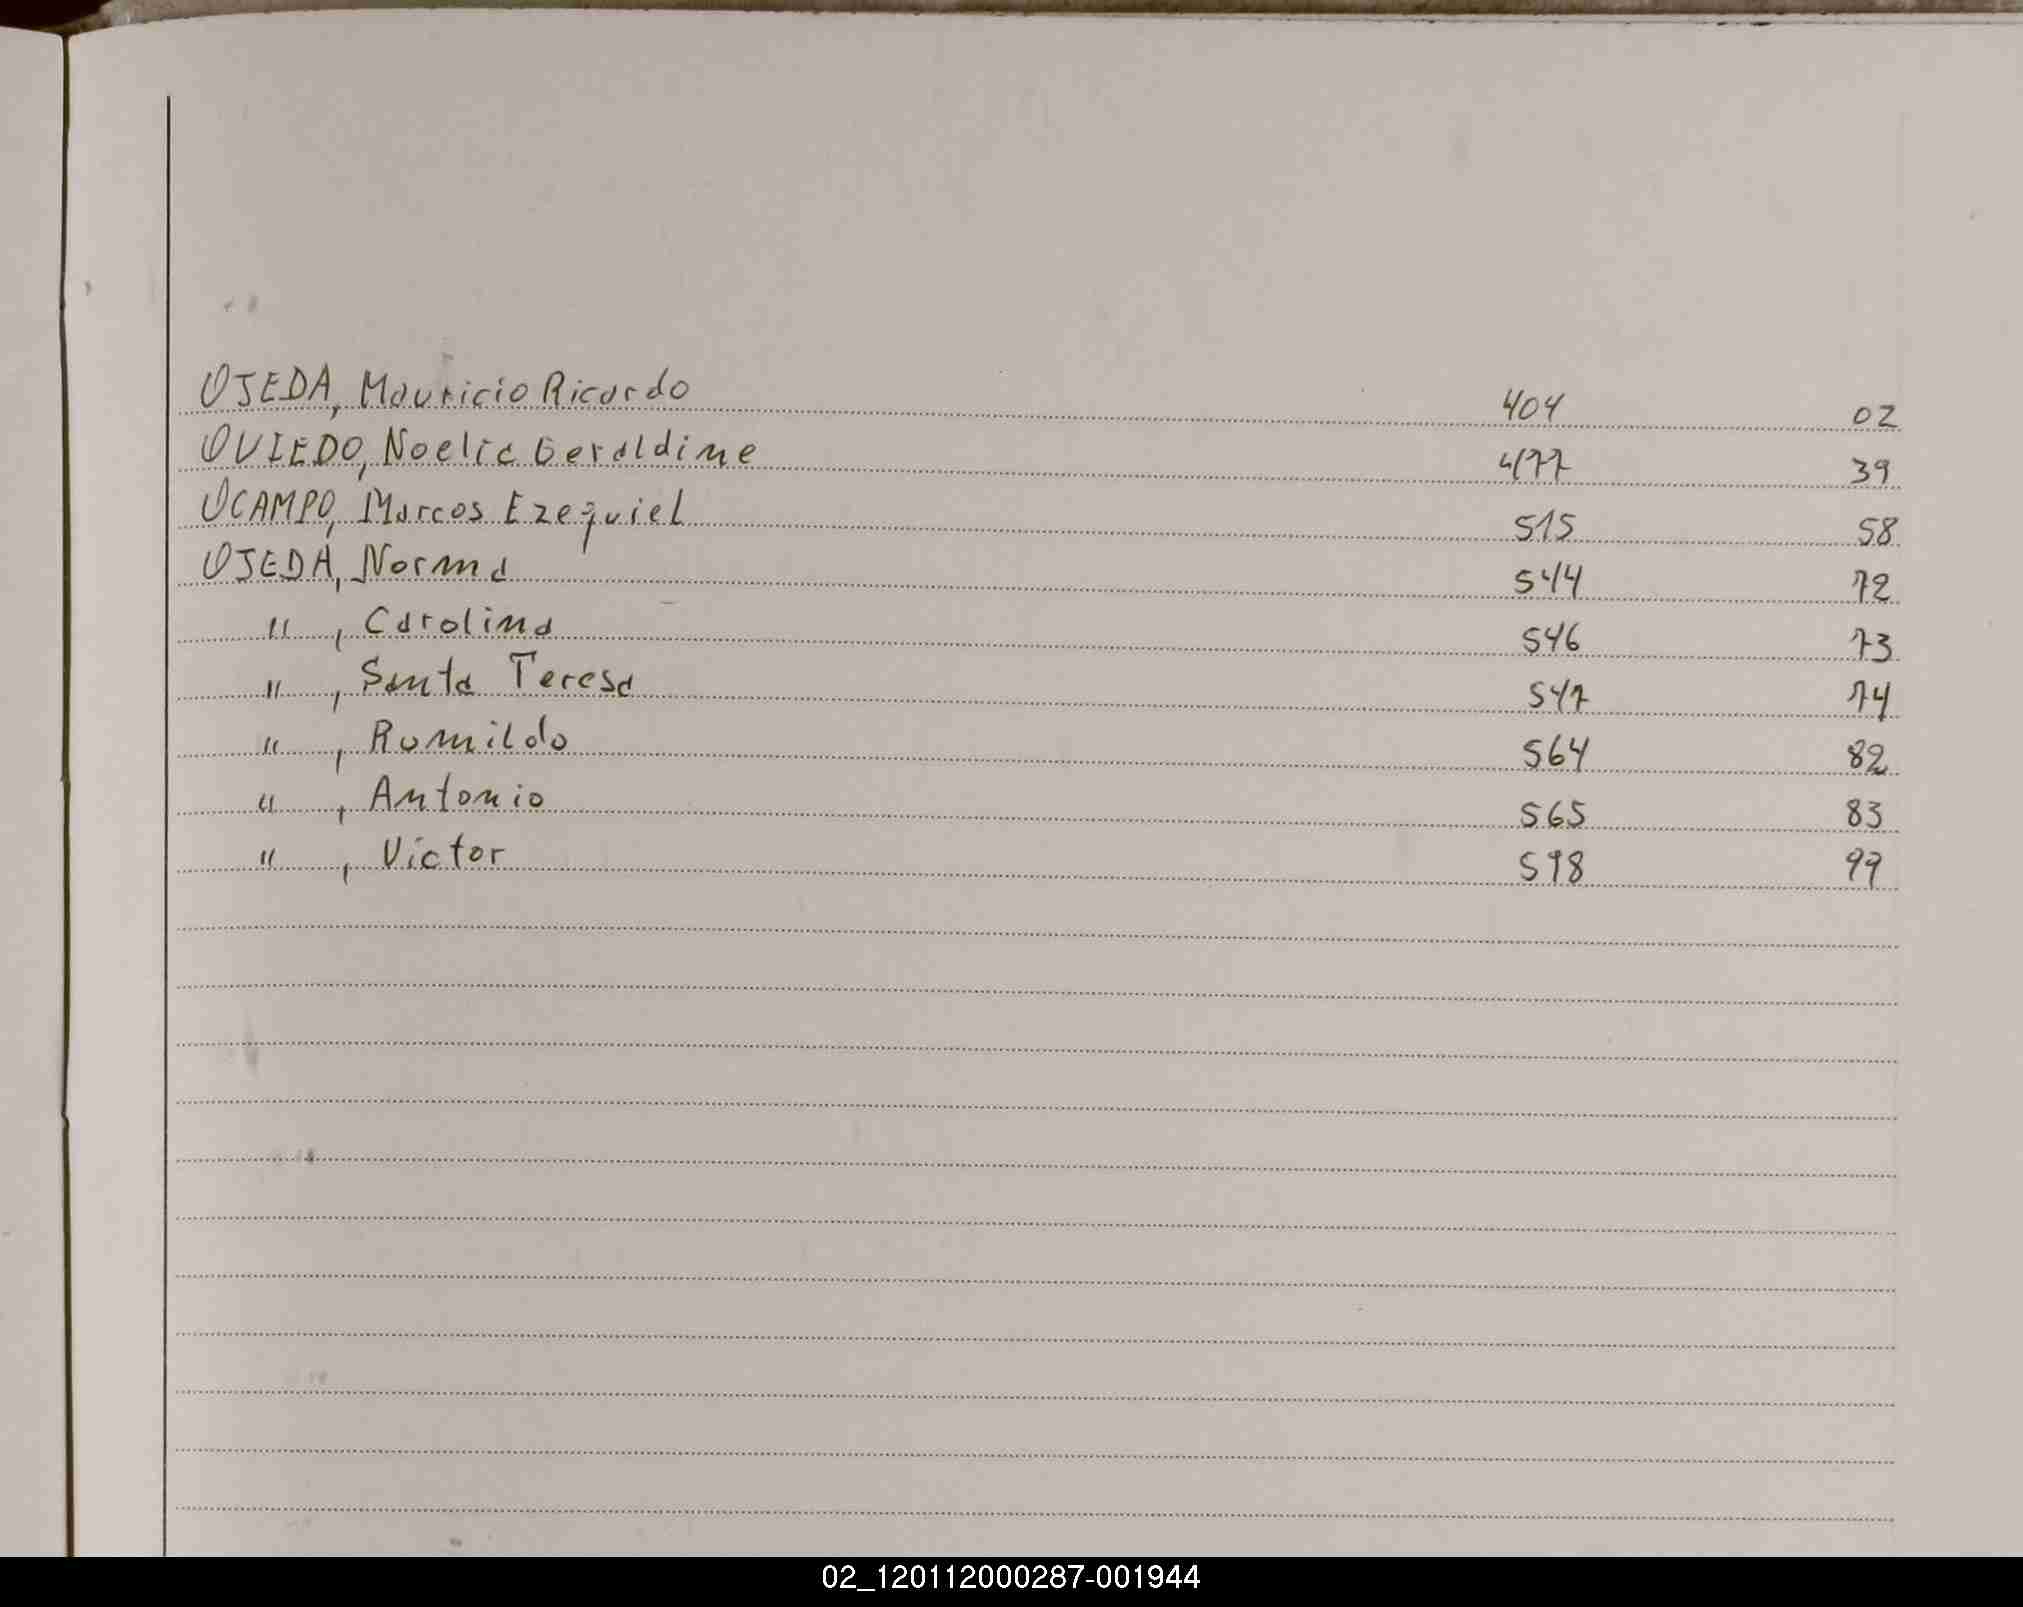 OJEDA, Mauricio Ricardo 404 02
OVIEDO, Noelia Geraldine 477 39
OCAMPO, Marcos Ezequiel 515 58
OJEDA, Norma 544 72
" , Carolina 546 73
" , Santa Teresa 547 74
" , Romildo 564 82
" , Antonio 565 83
" , Victor 598 99
02_120112000287-001944